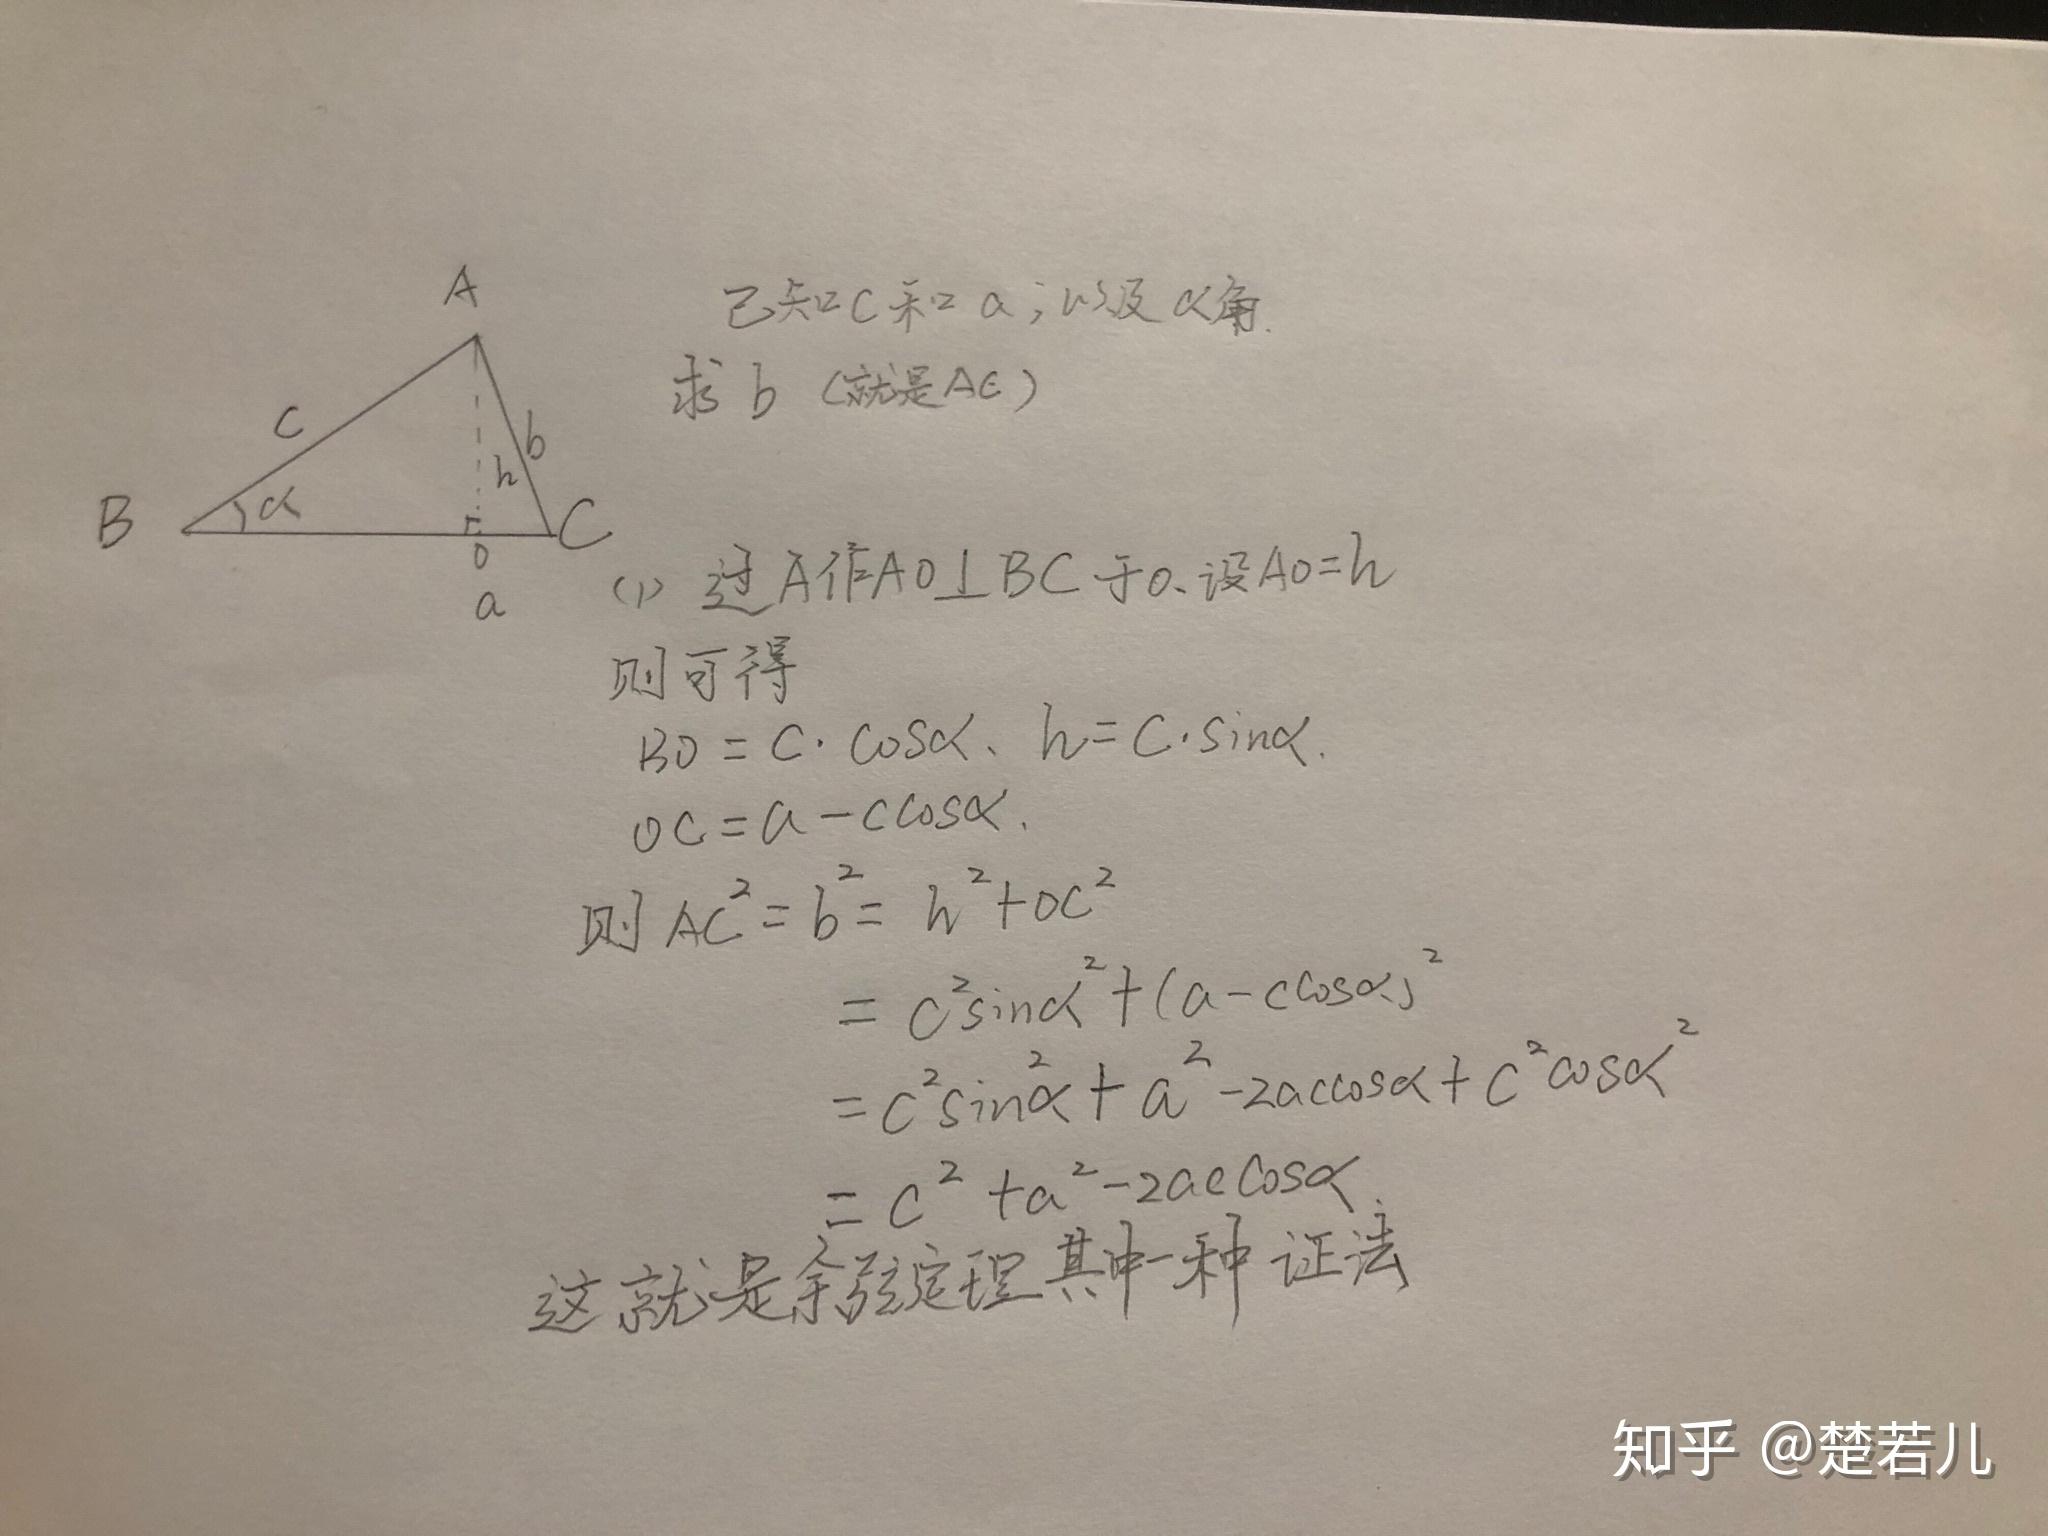 A
已知C和a;以及α角.
求b(就是AC)
c
b
h
B
α
C
O
a
(1) 过A作AO⊥BC于O、设AO=h
则可得
BO=C·cosα、h=C·sinα.
OC=a-ccosα.
则AC²=b²=h²+OC²
=C²sinα²+(a-ccosα)²
=C²sin²α+a²-2accosα+C²cosα²
=C²+a²-2accosα.
这就是余弦定理其中一种证法
知乎 @楚若儿